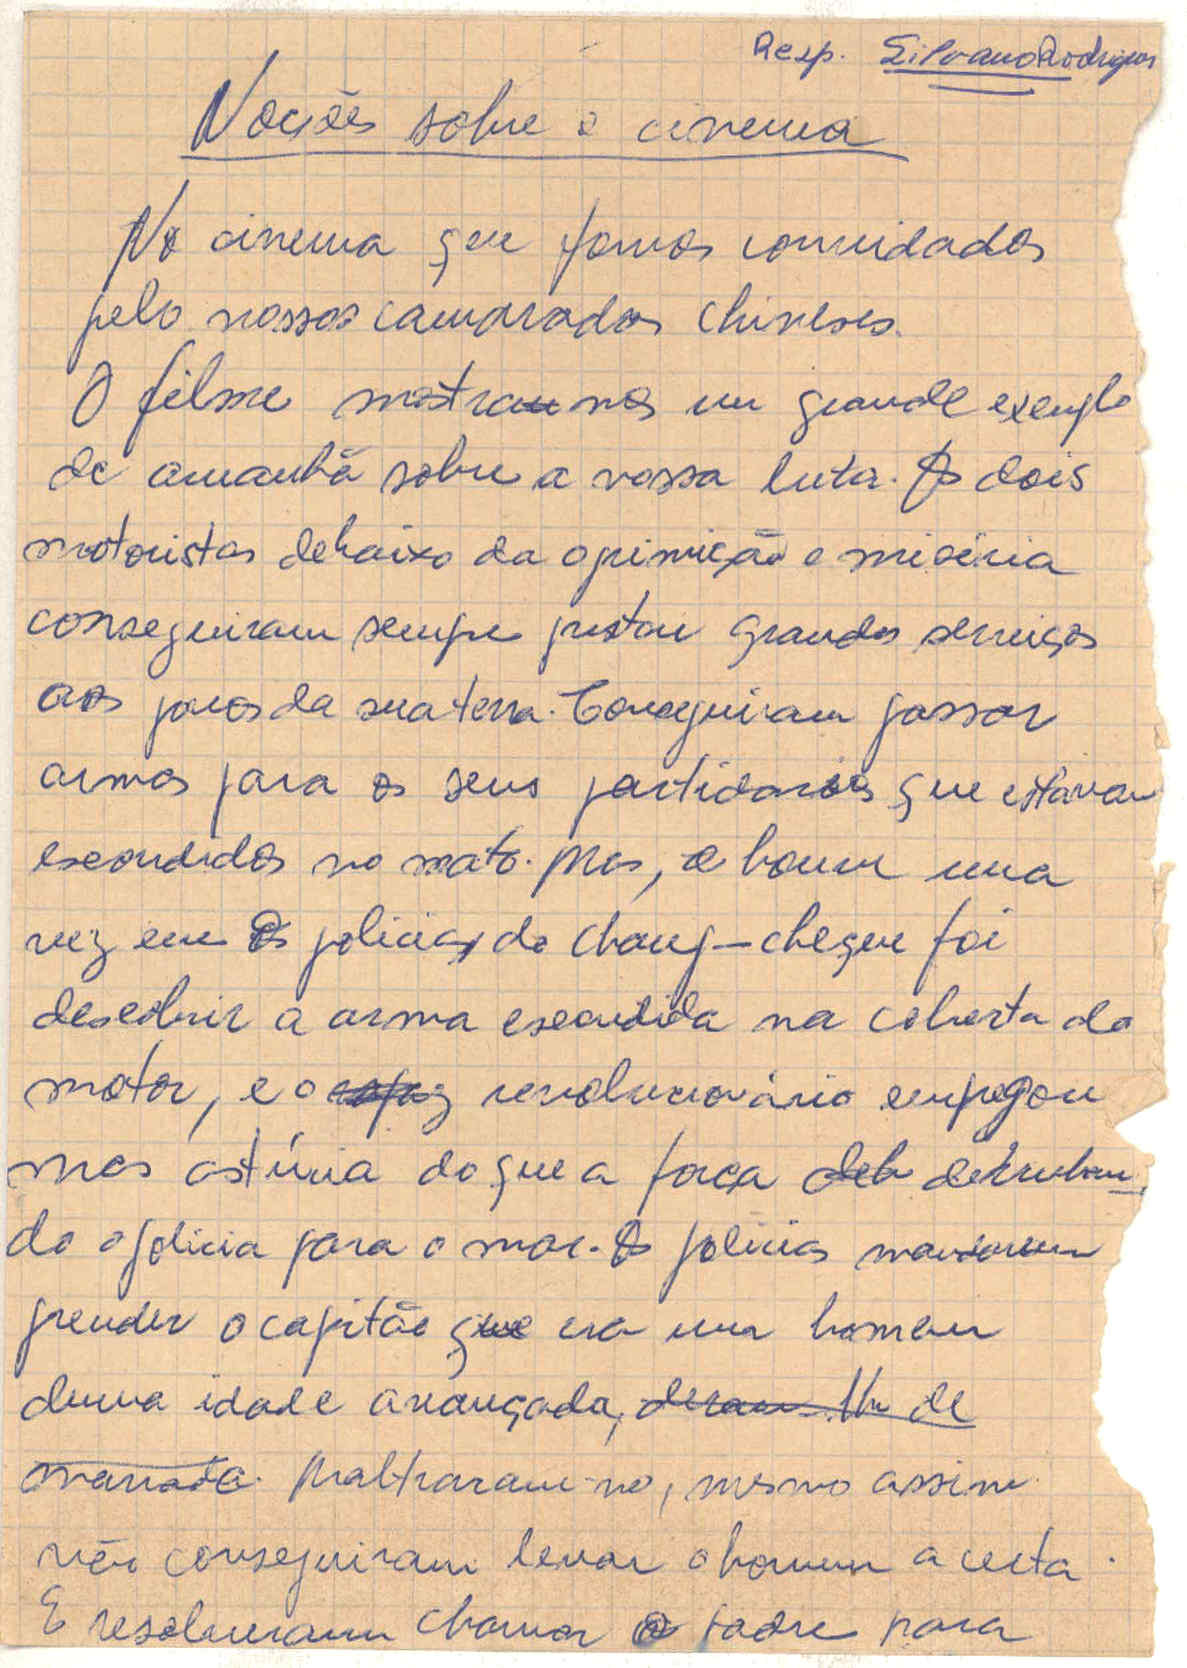 Resp. Silvano Rodrigues
Noções sobre o cinema
No cinema que fomos convidados
pelo nossos camaradas chineses.
O filme mostrou nos um grande exemplo
de amanhã sobre a nossa luta. Os dois
motoristas debaixo da oprimição e miséria
conseguiram sempre prestar grandes serviços
aos povos da sua terra. Conseguiram passar
armas para os seus partidarios que estavam
escondidos no mato. Mas, houve uma
vez em os policias do Chang-cheque foi
descobrir a arma escondida na coberta do
motor, e o revolucionário empregou
mas astúcia do que a força deb derruban-
do o policia para o mar. Os policias mandaram
prender o capitão que era um homem
duma idade avançada, deram Um de
marrada. Maltraram-no, mesmo assim
não conseguiram levar o homem a certa.
E resolveram chamar o padre para